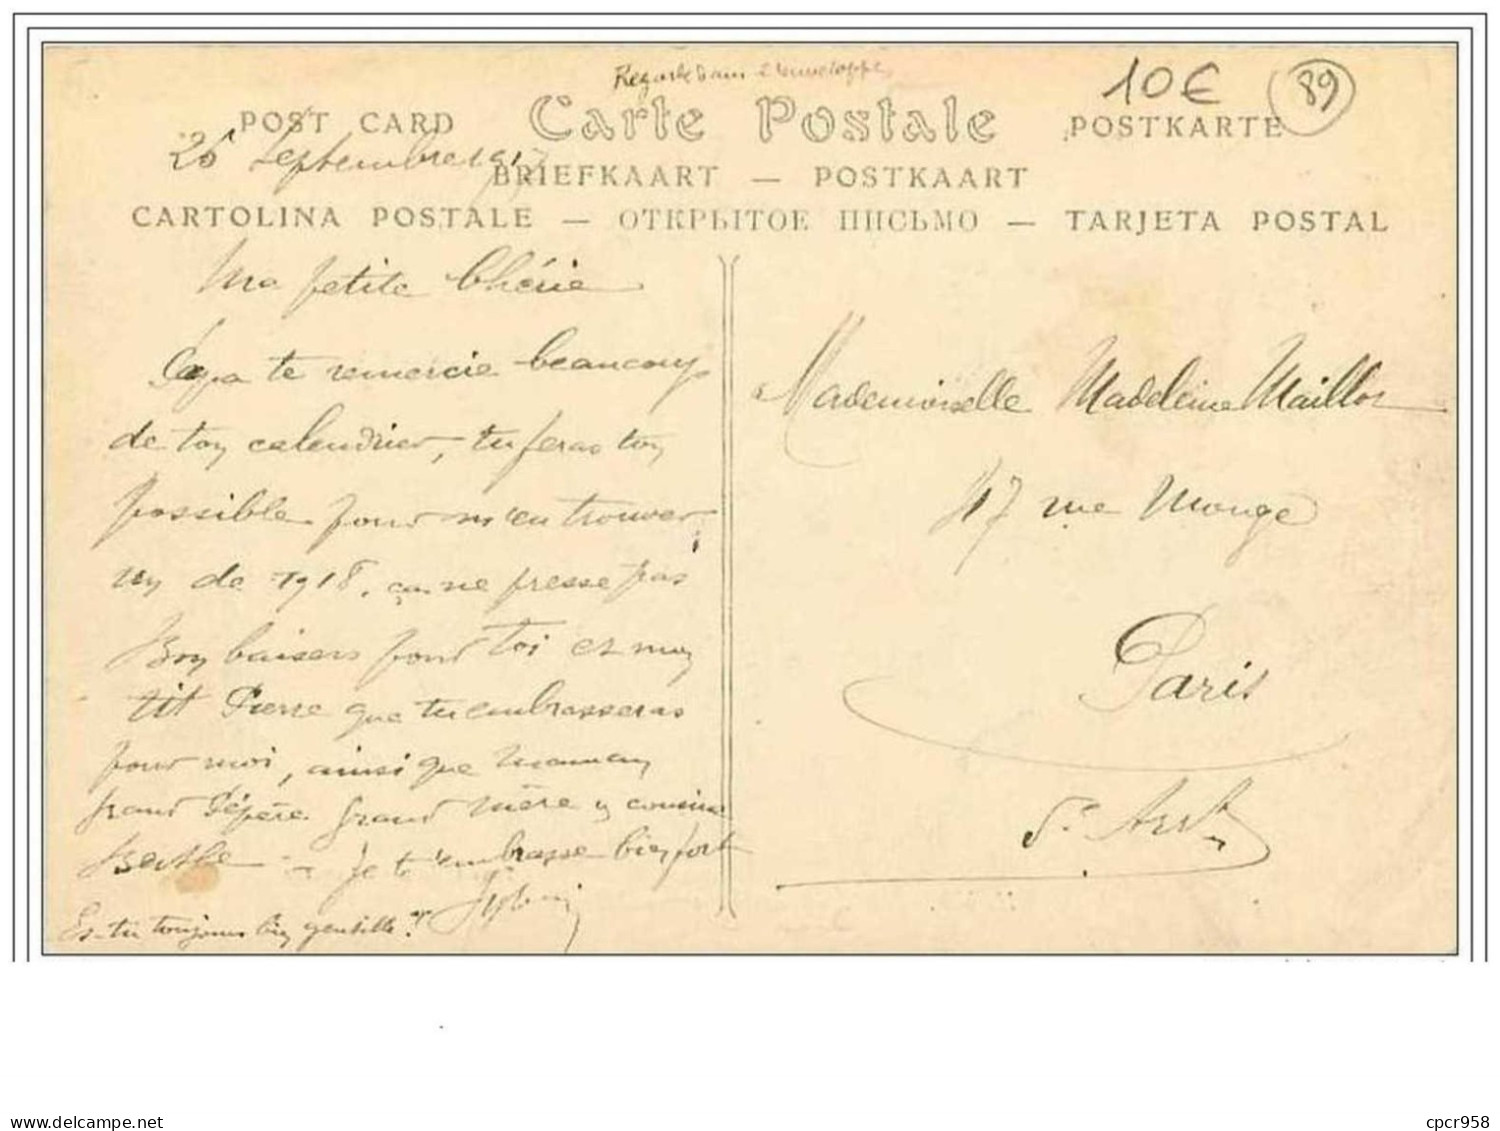 Regarde dans l'enveloppe
10€ 89
POST CARD Carte Postale POSTKARTE
26 Septembre 1917
BRIEFKAART — POSTKAART
CARTOLINA POSTALE — ОТКРЫТОЕ ПИСЬМО — TARJETA POSTAL
Ma petite Chérie
Papa te remercie beaucoup
de ton calendrier, tu feras ton
possible pour m'en trouver
un de 1918, ça ne presse pas
Bon baisers pour toi et mon
tit Pierre que tu embrasseras
pour moi, ainsi que maman
grand Pépère grand mère y cousine
Berthe — je t'embrasse bien fort
Es-tu toujours bien gentille?
Mademoiselle Madeleine Maillot
47 rue Monge
Paris